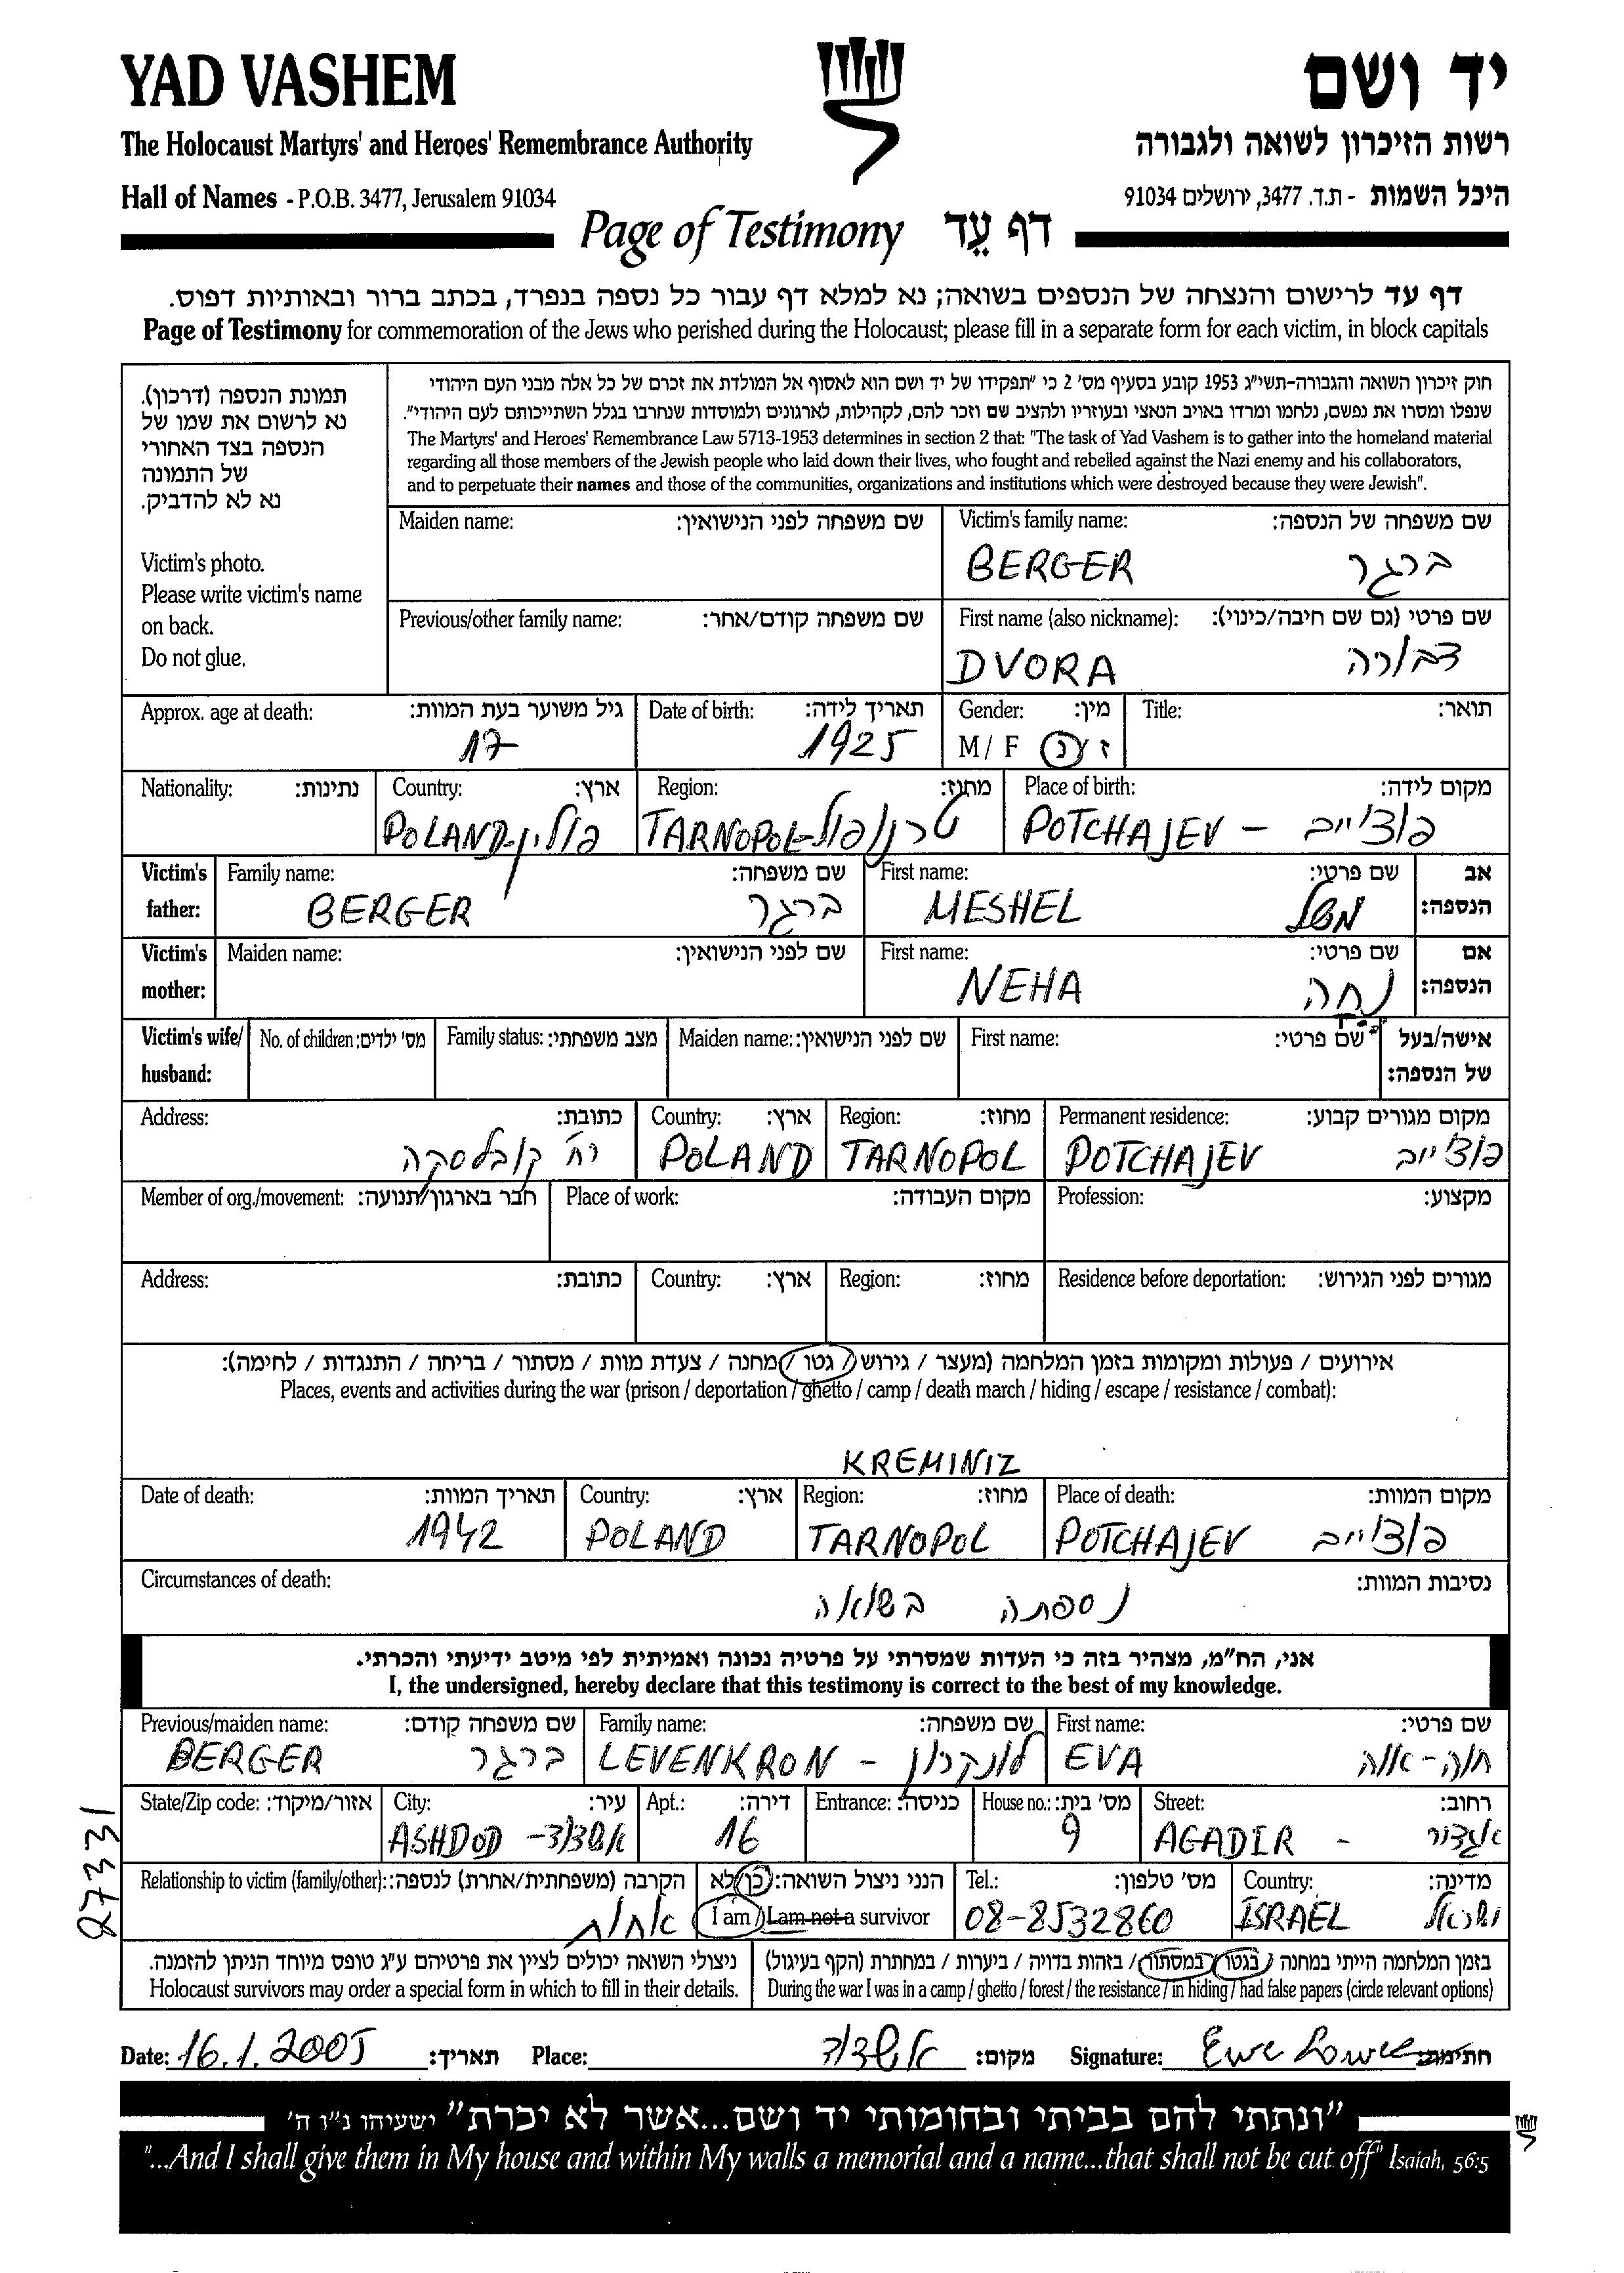 YAD VASHEM
יד ושם
The Holocaust Martyrs' and Heroes' Remembrance Authority
רשות הזיכרון לשואה ולגבורה
Hall of Names - P.O.B. 3477, Jerusalem 91034
היכל השמות - ת.ד. 3477, ירושלים 91034
Page of Testimony דף עֵד
דף עד לרישום והנצחה של הנספים בשואה; נא למלא דף עבור כל נספה בנפרד, בכתב ברור ובאותיות דפוס.
Page of Testimony for commemoration of the Jews who perished during the Holocaust; please fill in a separate form for each victim, in block capitals
תמונת הנספה (דרכון).
נא לרשום את שמו של
הנספה בצד האחורי
של התמונה
נא לא להדביק.
Victim's photo.
Please write victim's name
on back.
Do not glue.
חוק זיכרון השואה והגבורה-תשי"ג 1953 קובע בסעיף מס' 2 כי "תפקידו של יד ושם הוא לאסוף אל המולדת את זכרם של כל אלה מבני העם היהודי
שנפלו ומסרו את נפשם, נלחמו ומרדו באויב הנאצי ובעוזריו ולהציב שם וזכר להם, לקהילות, לארגונים ולמוסדות שנחרבו בגלל השתייכותם לעם היהודי".
The Martyrs' and Heroes' Remembrance Law 5713-1953 determines in section 2 that: "The task of Yad Vashem is to gather into the homeland material
regarding all those members of the Jewish people who laid down their lives, who fought and rebelled against the Nazi enemy and his collaborators,
and to perpetuate their names and those of the communities, organizations and institutions which were destroyed because they were Jewish".
Maiden name: שם משפחה לפני הנישואין:
Victim's family name: שם משפחה של הנספה:
BERGER ברגר
Previous/other family name: שם משפחה קודם/אחר:
First name (also nickname): שם פרטי (גם שם חיבה/כינוי):
DVORA דבורה
Approx. age at death: גיל משוער בעת המוות:
17
Date of birth: תאריך לידה:
1925
Gender: מין:
M / F ז / נ
Title: תואר:
Nationality: נתינות:
Country: ארץ:
POLAND-פולין
Region: מחוז:
TARNOPOL-טרנופול
Place of birth: מקום לידה:
POTCHAJEV - פוצ'ייב
Victim's father:
Family name: שם משפחה:
BERGER ברגר
First name: שם פרטי:
MESHEL משל
אב הנספה:
Victim's mother:
Maiden name: שם לפני הנישואין:
First name: שם פרטי:
NEHA נחה
אם הנספה:
Victim's wife/ husband:
No. of children: מס' ילדים:
Family status: מצב משפחתי:
Maiden name: שם לפני הנישואין:
First name: שם פרטי:
אישה/בעל של הנספה:
Address: כתובת:
רח' קובלסקה
Country: ארץ:
POLAND
Region: מחוז:
TARNOPOL
Permanent residence: מקום מגורים קבוע:
POTCHAJEV פוצ'ייב
Member of org./movement: חבר בארגון/תנועה:
Place of work: מקום העבודה:
Profession: מקצוע:
Address: כתובת:
Country: ארץ:
Region: מחוז:
Residence before deportation: מגורים לפני הגירוש:
אירועים / פעולות ומקומות בזמן המלחמה (מעצר / גירוש / גטו / מחנה / צעדת מוות / מסתור / בריחה / התנגדות / לחימה):
Places, events and activities during the war (prison / deportation / ghetto / camp / death march / hiding / escape / resistance / combat):
KREMINIZ
Date of death: תאריך המוות:
1942
Country: ארץ:
POLAND
Region: מחוז:
TARNOPOL
Place of death: מקום המוות:
POTCHAJEV פוצ'ייב
Circumstances of death: נסיבות המוות:
נספתה בשואה
אני, הח"מ, מצהיר בזה כי העדות שמסרתי על פרטיה נכונה ואמיתית לפי מיטב ידיעתי והכרתי.
I, the undersigned, hereby declare that this testimony is correct to the best of my knowledge.
Previous/maiden name: שם משפחה קודם:
BERGER ברגר
Family name: שם משפחה:
LEVENKRON - לונקרון
First name: שם פרטי:
EVA חוה-אוה
State/Zip code: אזור/מיקוד:
City: עיר:
ASHDOD - אשדוד
Apt.: דירה:
16
Entrance: כניסה:
House no.: מס' בית:
9
Street: רחוב:
AGADER - אגדיר
87331
Relationship to victim (family/other): הקרבה (משפחתית/אחרת) לנספה:
אחות
הנני ניצול השואה: כן/לא
I am / I am not a survivor
Tel.: מס' טלפון:
08-8532860
Country: מדינה:
ISRAEL ישראל
ניצולי השואה יכולים לציין את פרטיהם ע"ג טופס מיוחד הניתן להזמנה.
Holocaust survivors may order a special form in which to fill in their details.
בזמן המלחמה הייתי במחנה / בגטו / במסתור / בזהות בדויה / ביערות / במחתרת (הקף בעיגול)
During the war I was in a camp / ghetto / forest / the resistance / in hiding / had false papers (circle relevant options)
Date: 16.1.2005 תאריך: Place: אשדוד מקום: Signature: חתימה:
"ונתתי להם בביתי ובחומותי יד ושם...אשר לא יכרת" ישעיהו נ"ו ה'
"...And I shall give them in My house and within My walls a memorial and a name...that shall not be cut off" Isaiah, 56:5